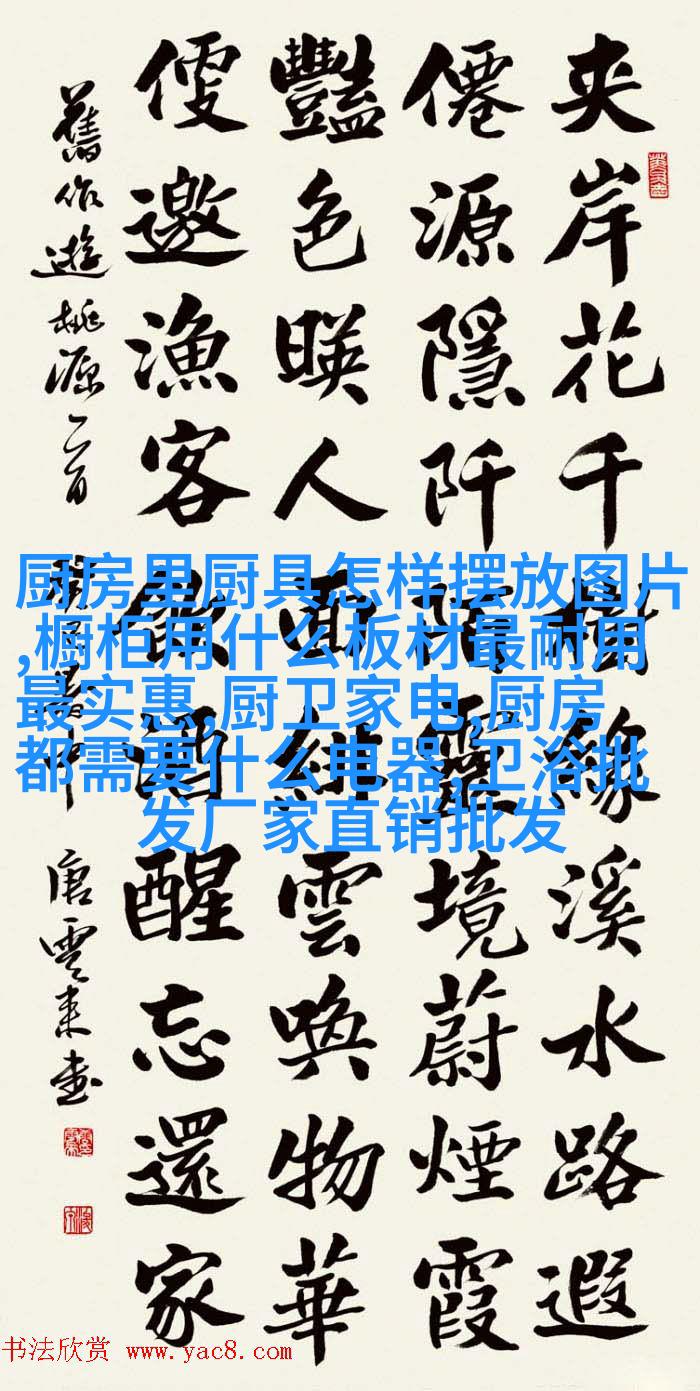 夾岸花千樹緣溪水路遐
僊源隱阡陌靈境蔚煙霞
豔色暎人面雲喚物華
便邀漁客飲酒醒忘還家
舊作遊桃源二首
唐雲來書
厨房里厨具怎样摆放图片
,橱柜用什么板材最耐用
最实惠,厨卫家电,厨房
都需要什么电器,卫浴批
发厂家直销批发
书法欣赏 www.yac8.com